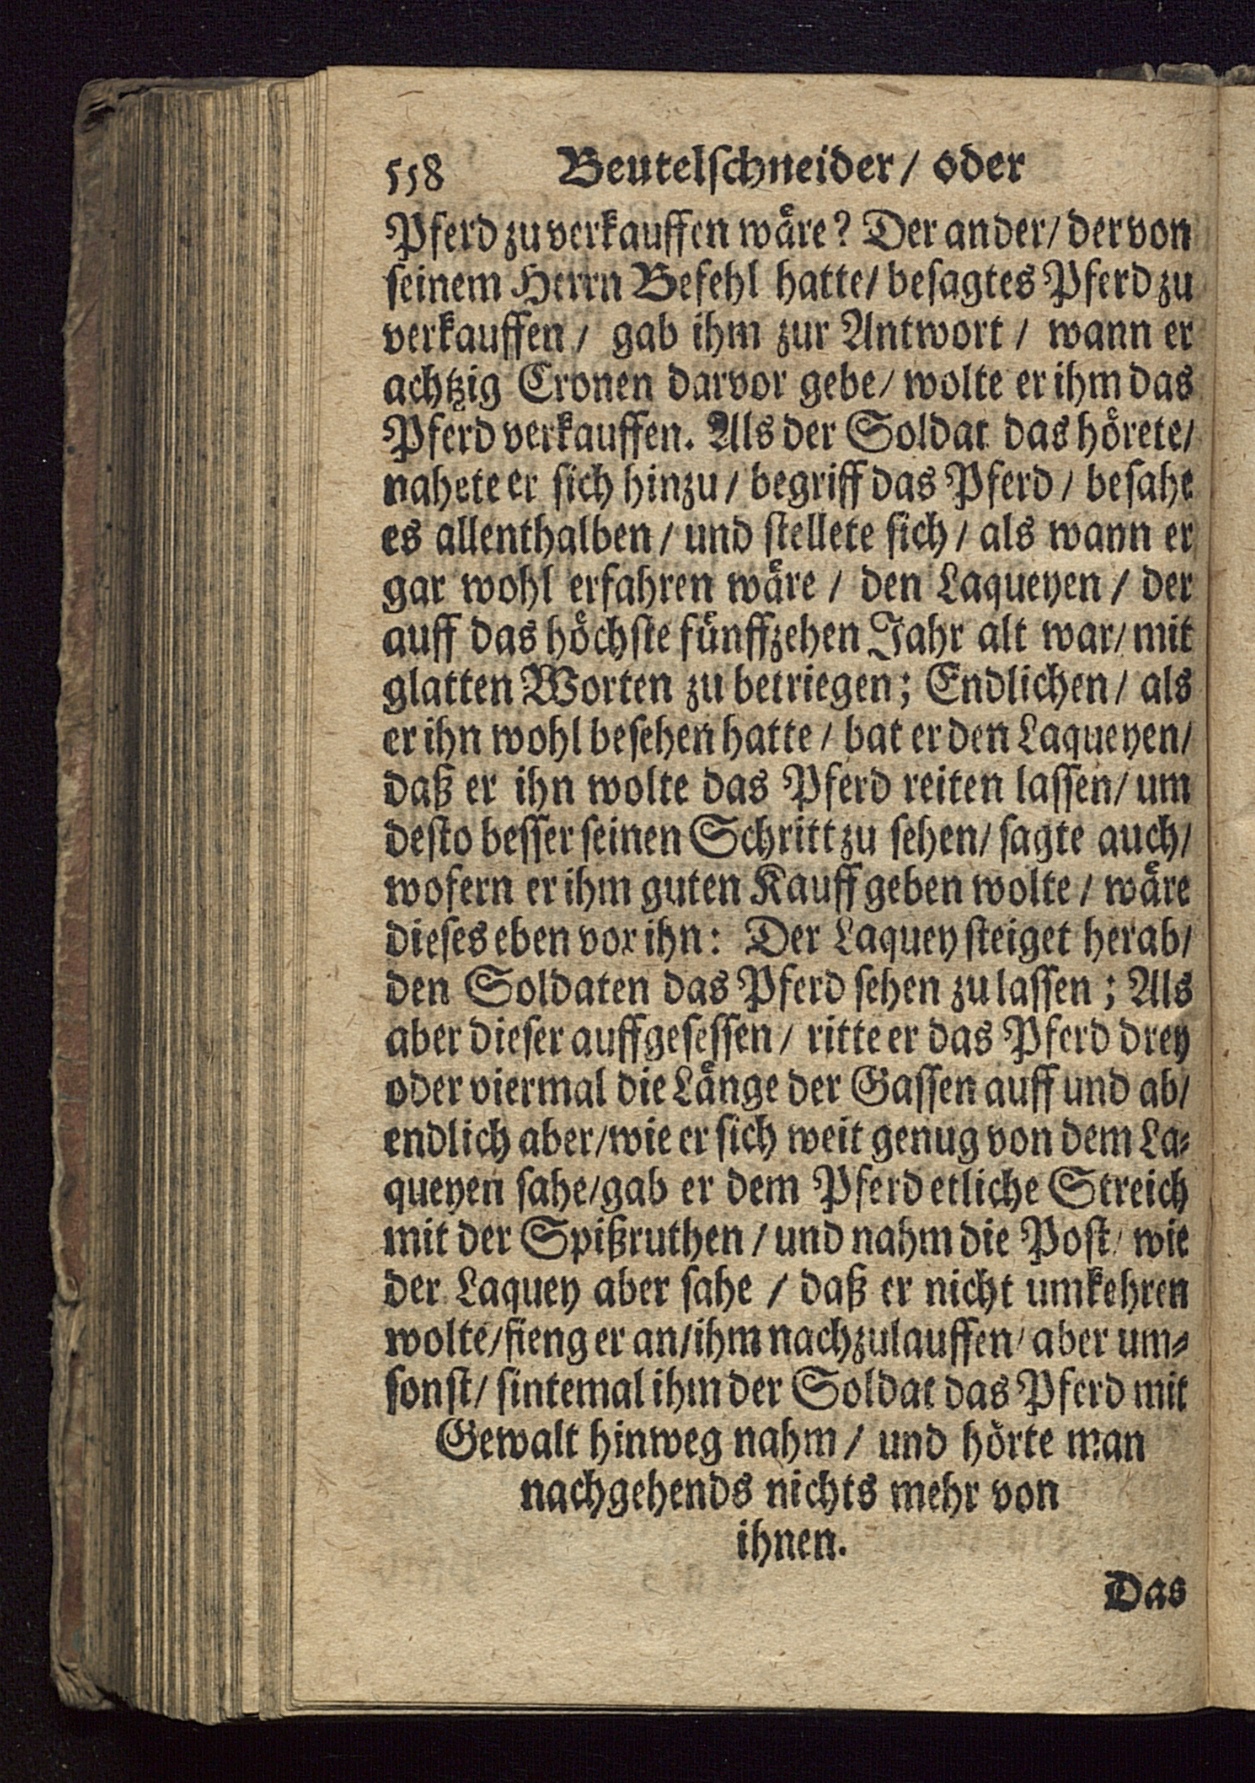 558 Beutelschneider / oder
Pferd zu verkauffen wåre? Der ander / der von
seinem Herrn Befehl hatte / besagtes Pferd zu
verkauffen / gab ihm zur Antwort / wann er
achtzig Cronen darvor gebe / wolte er ihm das
Pferd verkauffen. Als der Soldat das hörete /
nahete er sich hinzu / begriff das Pferd / besahe
es allenthalben / und stellete sich / als wann er
gar wohl erfahren wåre / den Laqueyen / der
auff das höchste fünffzehen Jahr alt war / mit
glatten Worten zu betriegen; Endlichen / als
er ihn wohl besehen hatte / bat er den Laqueyen /
daß er ihn wolte das Pferd reiten lassen / um
desto besser seinen Schritt zu sehen / sagte auch /
wofern er ihm guten Kauff geben wolte / wåre
dieses eben vor ihn: Der Laquey steiget herab /
den Soldaten das Pferd sehen zu lassen; Als
aber dieser auffgesessen / ritte er das Pferd drey
oder viermal die Långe der Gassen auff und ab /
endlich aber / wie er sich weit genug von dem La-
queyen sahe / gab er dem Pferd etliche Streich
mit der Spißruthen / und nahm die Post / wie
der Laquey aber sahe / daß er nicht umkehren
wolte / fieng er an / ihm nachzulauffen / aber um-
sonst / sintemal ihm der Soldat das Pferd mit
Gewalt hinweg nahm / und hörte man
nachgehends nichts mehr von
ihnen.
Das